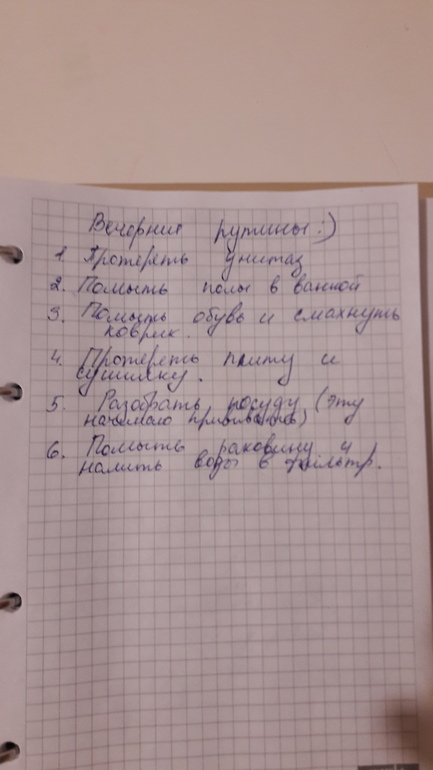 Вечерние рутины :)
1 Протереть унитаз
2. Помыть полы в ванной
3. Помыть обувь и смахнуть
коврик.
4. Протереть плиту и
сушилку.
5. Разобрать посуду (эту
начинаю прививать)
6. Помыть раковину и
налить воды в фильтр.